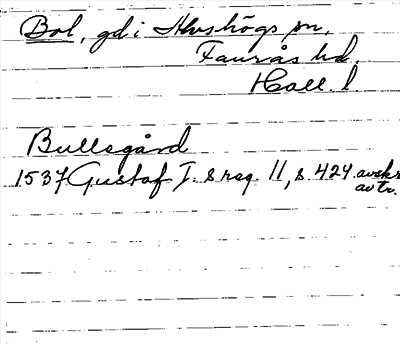 Bol, gd i Alvshögs sn,
Faurås hd.
Hall. l.
Bullsgård
1537 Gustaf I:s reg. 11, s. 424 avskr.
av tr.